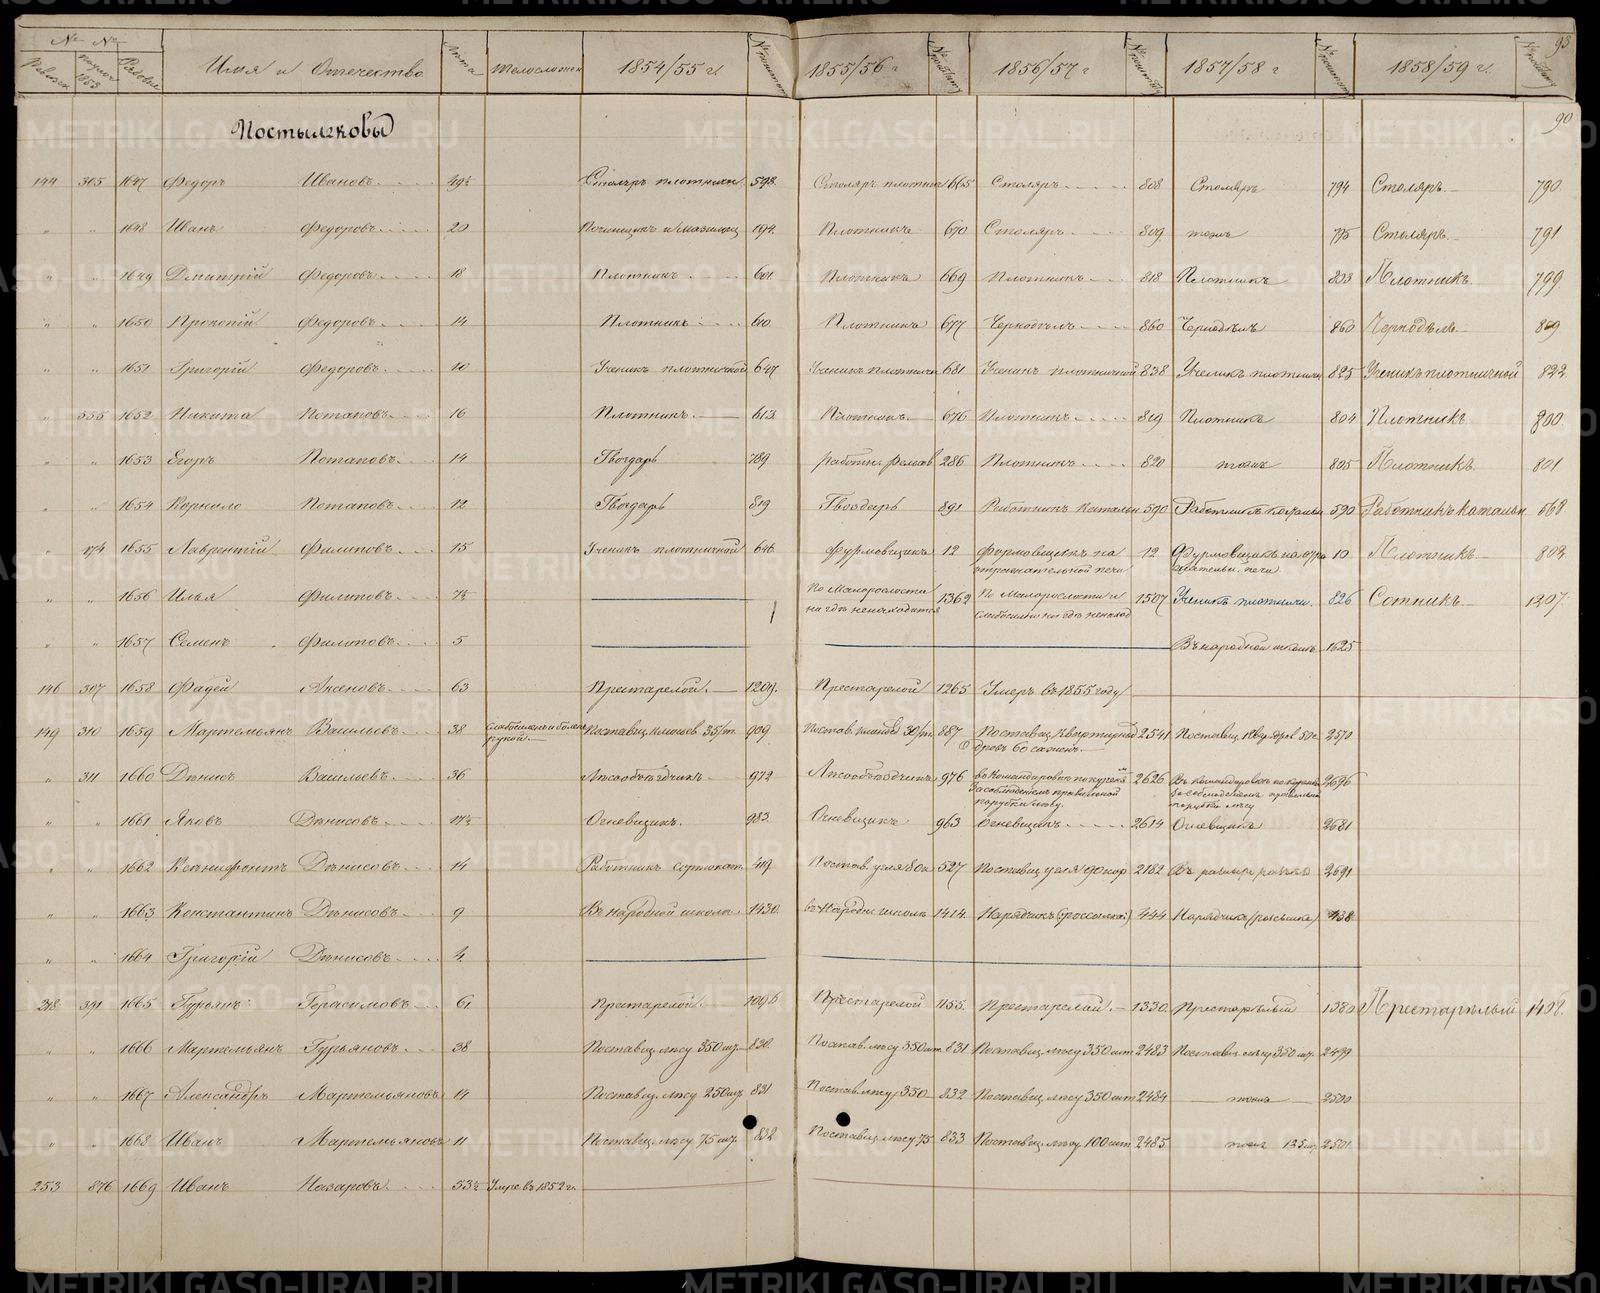 № № Имя и Отечество Лѣта Телосложен 1854/55 г. 1855/56 г 1856/57 г 1857/58 г 1858/59 г. 93
1853
90
Постылековы
144 305 1647 Федоръ Ивановъ 49½ Столяръ плотничн. 598. Столяръ плотнич 665 Столяръ 808 Столяръ 794 Столяръ 790
" " 1648 Иванъ Федоровъ 20 194. Плотникъ 670 Столяръ 809 тожъ 795 Столяръ 791
" " 1649 Дмитрій Федоровъ 18 Плотникъ 601. Плотникъ 669 Плотникъ 818 Плотникъ 803 Плотникъ 799
" " 1650 Прокопій Федоровъ 14 Плотникъ 610. Плотникъ 677 Чернодѣлъ 860 Чернодѣлъ 860 Чернодѣлъ 869
" " 1651 Григорій Федоровъ 10 Ученикъ плотничной 647 Ученикъ плотничн 681 Ученикъ плотничной 838 Ученикъ плотничн 825 Ученикъ плотничной 822
" 555 1652 Никита Потаповъ 16 Плотникъ 613. Плотникъ 676 Плотникъ 819 Плотникъ 804 Плотникъ 800
" " 1653 Егоръ Потаповъ 14 Гвоздарь 789 286 Плотникъ 820 тожъ 805 Плотникъ 801
" " 1654 Корнило Потаповъ 12 Гвоздарь 819 Гвоздарь 891 Работникъ катальн 590 Работникъ катальн 590 Работникъ катальн 568
" 174 1655 Лаврентій Филиповъ 15 Ученикъ плотничной 646. Фурмовщикъ 12 Фурмовщикъ на 12 Фурмовщикъ на отра 10 Плотникъ 804
отражательной печи жательн. печи
" " 1656 Илья Филиповъ 7½ По Малорослости 1362 По Малорослости и 1507 Ученикъ плотничн. 826 Сотникъ 1307.
на гдѣ ненаходится слабосилію ни гдѣ ненаход
" " 1657 Семенъ Филиповъ 5 Въ народной школѣ 1625
146 307 1658 Фадей Аксеновъ 63 Престарелой. 1209. Престарелой 1265 Умеръ въ 1855 году
149 310 1659 Мартемьянъ Васильевъ 38 слабосиленъ и боленъ рукой. 35/m. 909. 30/m. 887 Поставщ. квартирныхъ 2541 2570
дровъ 60 сажень.
" 311 1660 Денисъ Васильевъ 36 Лѣсообъѣздчикъ 972 Лѣсообъѣздчикъ 976 въ Командировкѣ 2626 Въ командировкѣ 2696
За соблюденіемъ правильной
порубки лѣсу. порубки лѣсу
" " 1661 Яковъ Денисовъ 17½ Огневщикъ. 983. Огневщикъ 963 Огневщикъ 2614 Огневщикъ 2681
" " 1662 Ксенифонтъ Денисовъ 14 Работникъ 419. Постав. угля 80 к 527 Поставщ угля 90 кор 2182 2691
" " 1663 Константинъ Денисовъ 9 Въ народной школѣ 1430. въ Народн. школѣ 1414. Нарядчикъ (россылка) 444 Нарядчикъ (росылка) 438
" " 1664 Григорій Денисовъ 4.
218 391 1665 Гурьянъ Герасимовъ 61. Престарелой 1096 Престарелой 1155. Престарелой. 1330. Престарѣлый 1380 Престарѣлый 1408.
" " 1666 Мартемьянъ Гурьяновъ 38 Поставщ. лѣсу 350 шт. 830. Постав. лѣсу 350 шт. 831 Поставщ. лѣсу 350 шт 2483 Поставщ. лѣсу 350 шт. 2499
" " 1667 Александръ Мартемьяновъ 14 Поставщ. лѣсу 250 шт 831 Постав. лѣсу 350 832 Поставщ. лѣсу 350 шт 2484 тожъ 2500
" " 1668 Иванъ Мартемьяновъ 11 Поставщ. лѣсу 75 шт. 832 Поставщ. лѣсу 75 833 Поставщ. лѣсу 100 шт 2485 тожъ 125 шт. 2501
253 876 1669 Иванъ Назаровъ 53½ Умре въ 1852 г.
METRIKI.GASO-URAL.RU